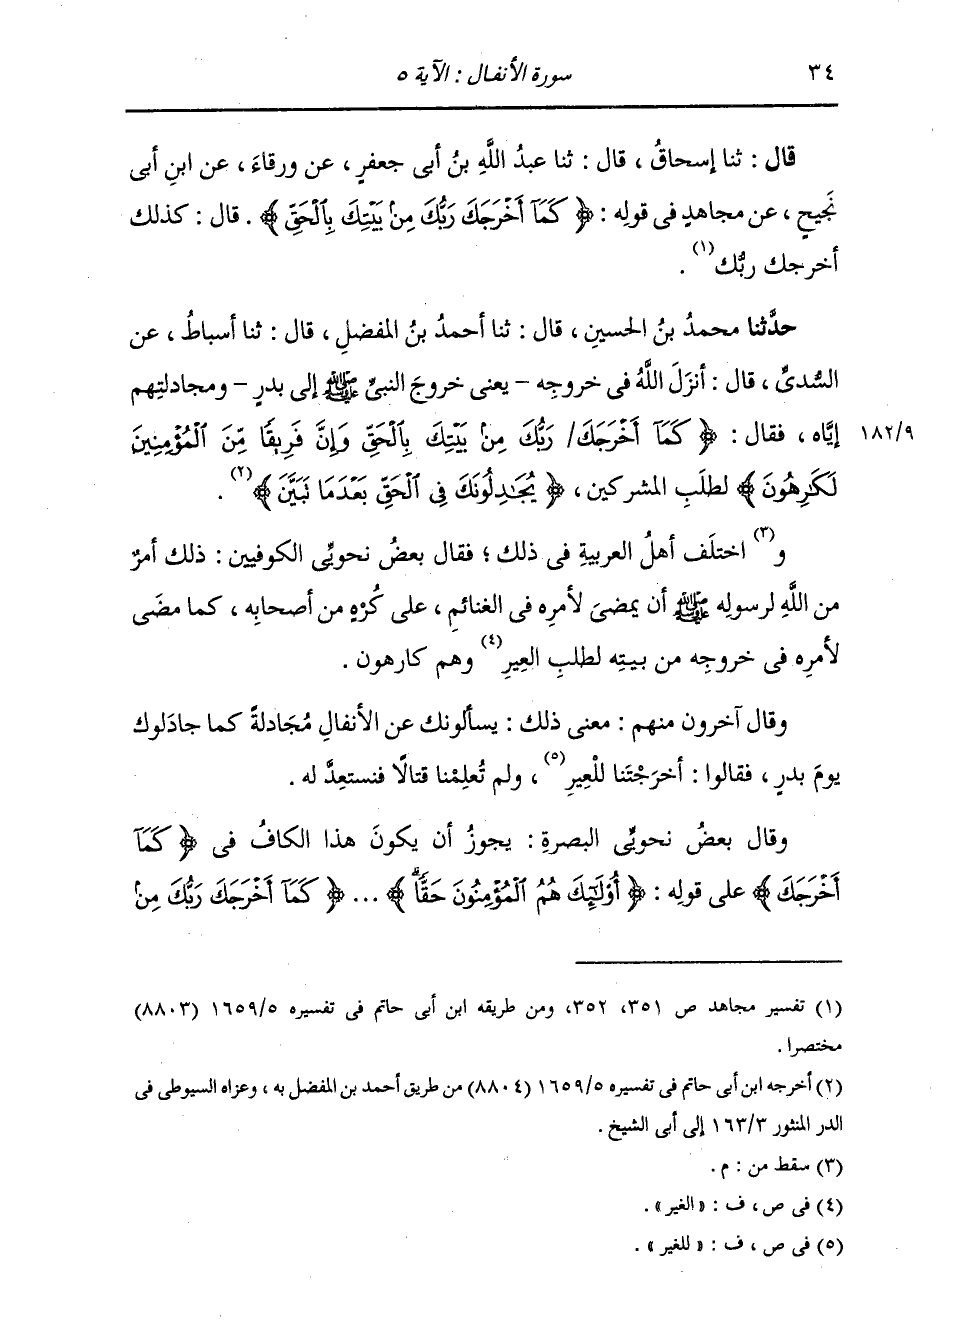 ٣٤ سورة الأنفال : الآية ٥
قال : ثنا إسحاقُ ، قال : ثنا عبدُ اللَّهِ بنُ أبى جعفرٍ ، عن ورقاءَ ، عن ابنِ أبى
نَجيحٍ ، عن مجاهدٍ فى قولِه : ﴿ كَمَآ أَخْرَجَكَ رَبُّكَ مِنۢ بَيْتِكَ بِٱلْحَقِّ ﴾ . قال : كذلك
أخرجك ربُّك(١) .
حدَّثنا محمدُ بنُ الحسينِ ، قال : ثنا أحمدُ بنُ المفضلِ ، قال : ثنا أسباطُ ، عن
السُّدىِّ ، قال : أنزَل اللَّهُ فى خروجِه – يعنى خروجَ النبىِّ ﷺ إلى بدرٍ – ومجادلتِهم
إيَّاه ، فقال : ﴿ كَمَآ أَخْرَجَكَ/ رَبُّكَ مِنۢ بَيْتِكَ بِٱلْحَقِّ وَإِنَّ فَرِيقًا مِّنَ ٱلْمُؤْمِنِينَ ١٨٢/٩
لَكَـٰرِهُونَ ﴾ لطلَبِ المشركين ، ﴿ يُجَـٰدِلُونَكَ فِى ٱلْحَقِّ بَعْدَمَا تَبَيَّنَ ﴾(٢) .
و(٣) اختلَف أهلُ العربيةِ فى ذلك ؛ فقال بعضُ نحويِّى الكوفيين : ذلك أمرٌ
من اللَّهِ لرسولِه ﷺ أن يمضىَ لأمرِه فى الغنائمِ ، على كُرْهٍ من أصحابِه ، كما مضَى
لأمرِه فى خروجِه من بيتِه لطلبِ العِيرِ(٤) وهم كارهون .
وقال آخرون منهم : معنى ذلك : يسألونك عن الأنفالِ مُجَادلةً كما جادَلوك
يومَ بدرٍ ، فقالوا : أخرَجْتَنا للْعِيرِ(٥) ، ولم تُعلِمْنا قتالًا فنستعِدَّ له .
وقال بعضُ نحويِّى البصرةِ : يجوزُ أن يكونَ هذا الكافُ فى ﴿ كَمَآ
أَخْرَجَكَ ﴾ على قولِه : ﴿ أُوْلَـٰٓئِكَ هُمُ ٱلْمُؤْمِنُونَ حَقًّاۚ ﴾ ... ﴿ كَمَآ أَخْرَجَكَ رَبُّكَ مِنۢ
(١) تفسير مجاهد ص ٣٥١، ٣٥٢، ومن طريقه ابن أبى حاتم فى تفسيره ١٦٥٩/٥ (٨٨٠٣)
مختصرا .
(٢) أخرجه ابن أبى حاتم فى تفسيره ١٦٥٩/٥ (٨٨٠٤) من طريق أحمد بن المفضل به ، وعزاه السيوطى فى
الدر المنثور ١٦٣/٣ إلى أبى الشيخ .
(٣) سقط من : م .
(٤) فى ص ، ف : « الغير » .
(٥) فى ص ، ف : « للغير » .